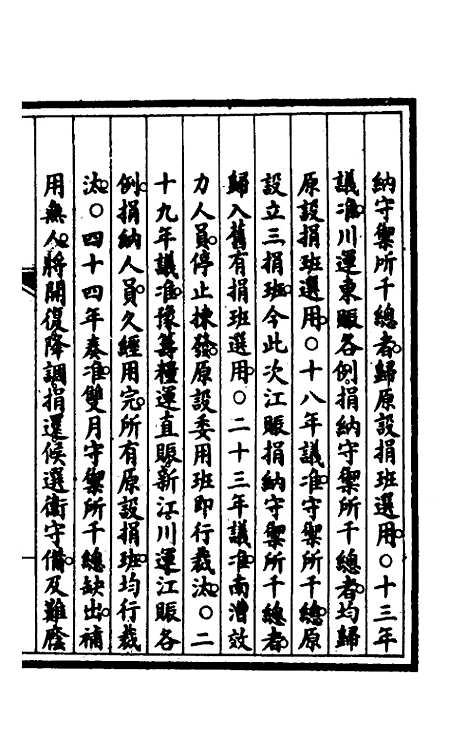 納守禦所千總者歸原設捐班選用○十三年
議准川運東賑各例捐納守禦所千總者均歸
原設捐班選用○十八年議准守禦所千總原
設立三捐班今此次江賑捐納守禦所千總者
歸入舊有捐班選用○二十三年議准南漕效
力人員停止揀發原設委用班即行裁汰○二
十九年議准豫籌糧運直賑新江川運江賑各
例捐納人員久經用完所有原設捐班均行裁
汰○四十四年奏准雙月守禦所千總缺出補
用無人將開復降調捐還候選衞守備及難廕